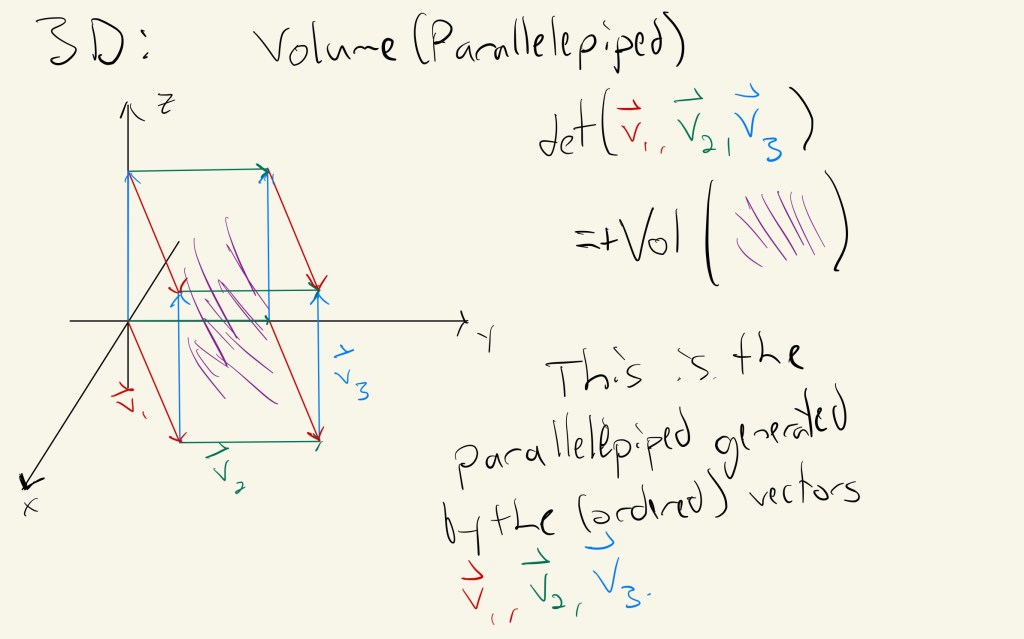 3D: Volume (Parallelepiped)
z
det(v⃗₁, v⃗₂, v⃗₃)
=+Vol ( )
y
v⃗₁
v⃗₃
v⃗₂
x
This is the
parallelepiped generated
by the (ordered) vectors
v⃗₁, v⃗₂, v⃗₃.